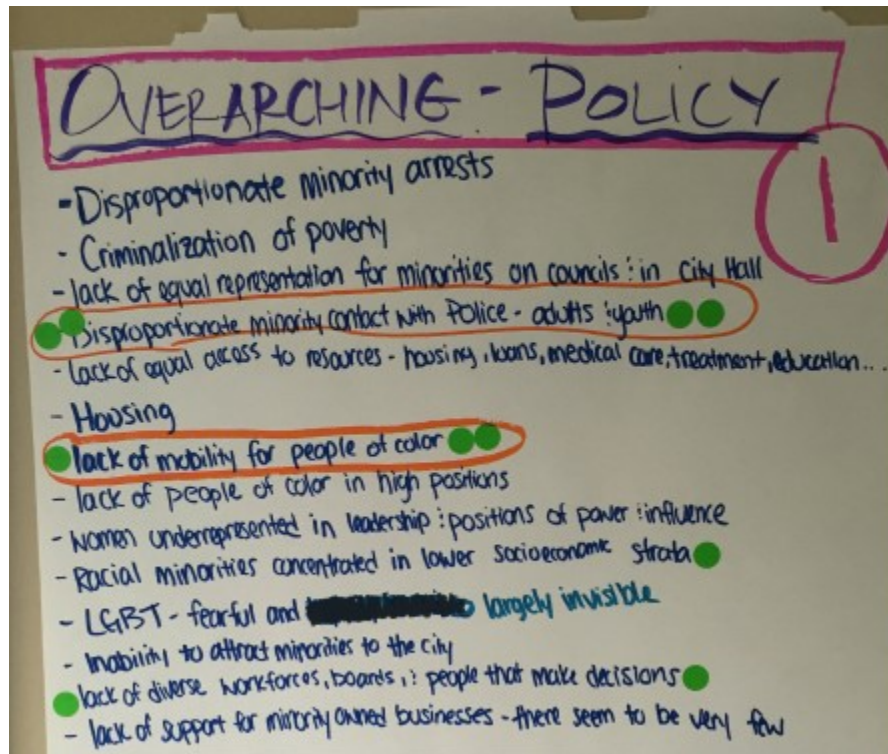 OVERARCHING - POLICY
1
- Disproportionate minority arrests
- Criminalization of poverty
- lack of equal representation for minorities on councils & in City Hall
- Disproportionate minority contact with Police - adults & youth
- lack of equal access to resources - housing, loans, medical care, treatment, education...
- Housing
- lack of mobility for people of color
- lack of people of color in high positions
- women underrepresented in leadership & positions of power & influence
- Racial minorities concentrated in lower socioeconomic strata
- LGBT - fearful and largely invisible
- Inability to attract minorities to the city
- lack of diverse workforces, boards, & people that make decisions
- lack of support for minority owned businesses - there seem to be very few